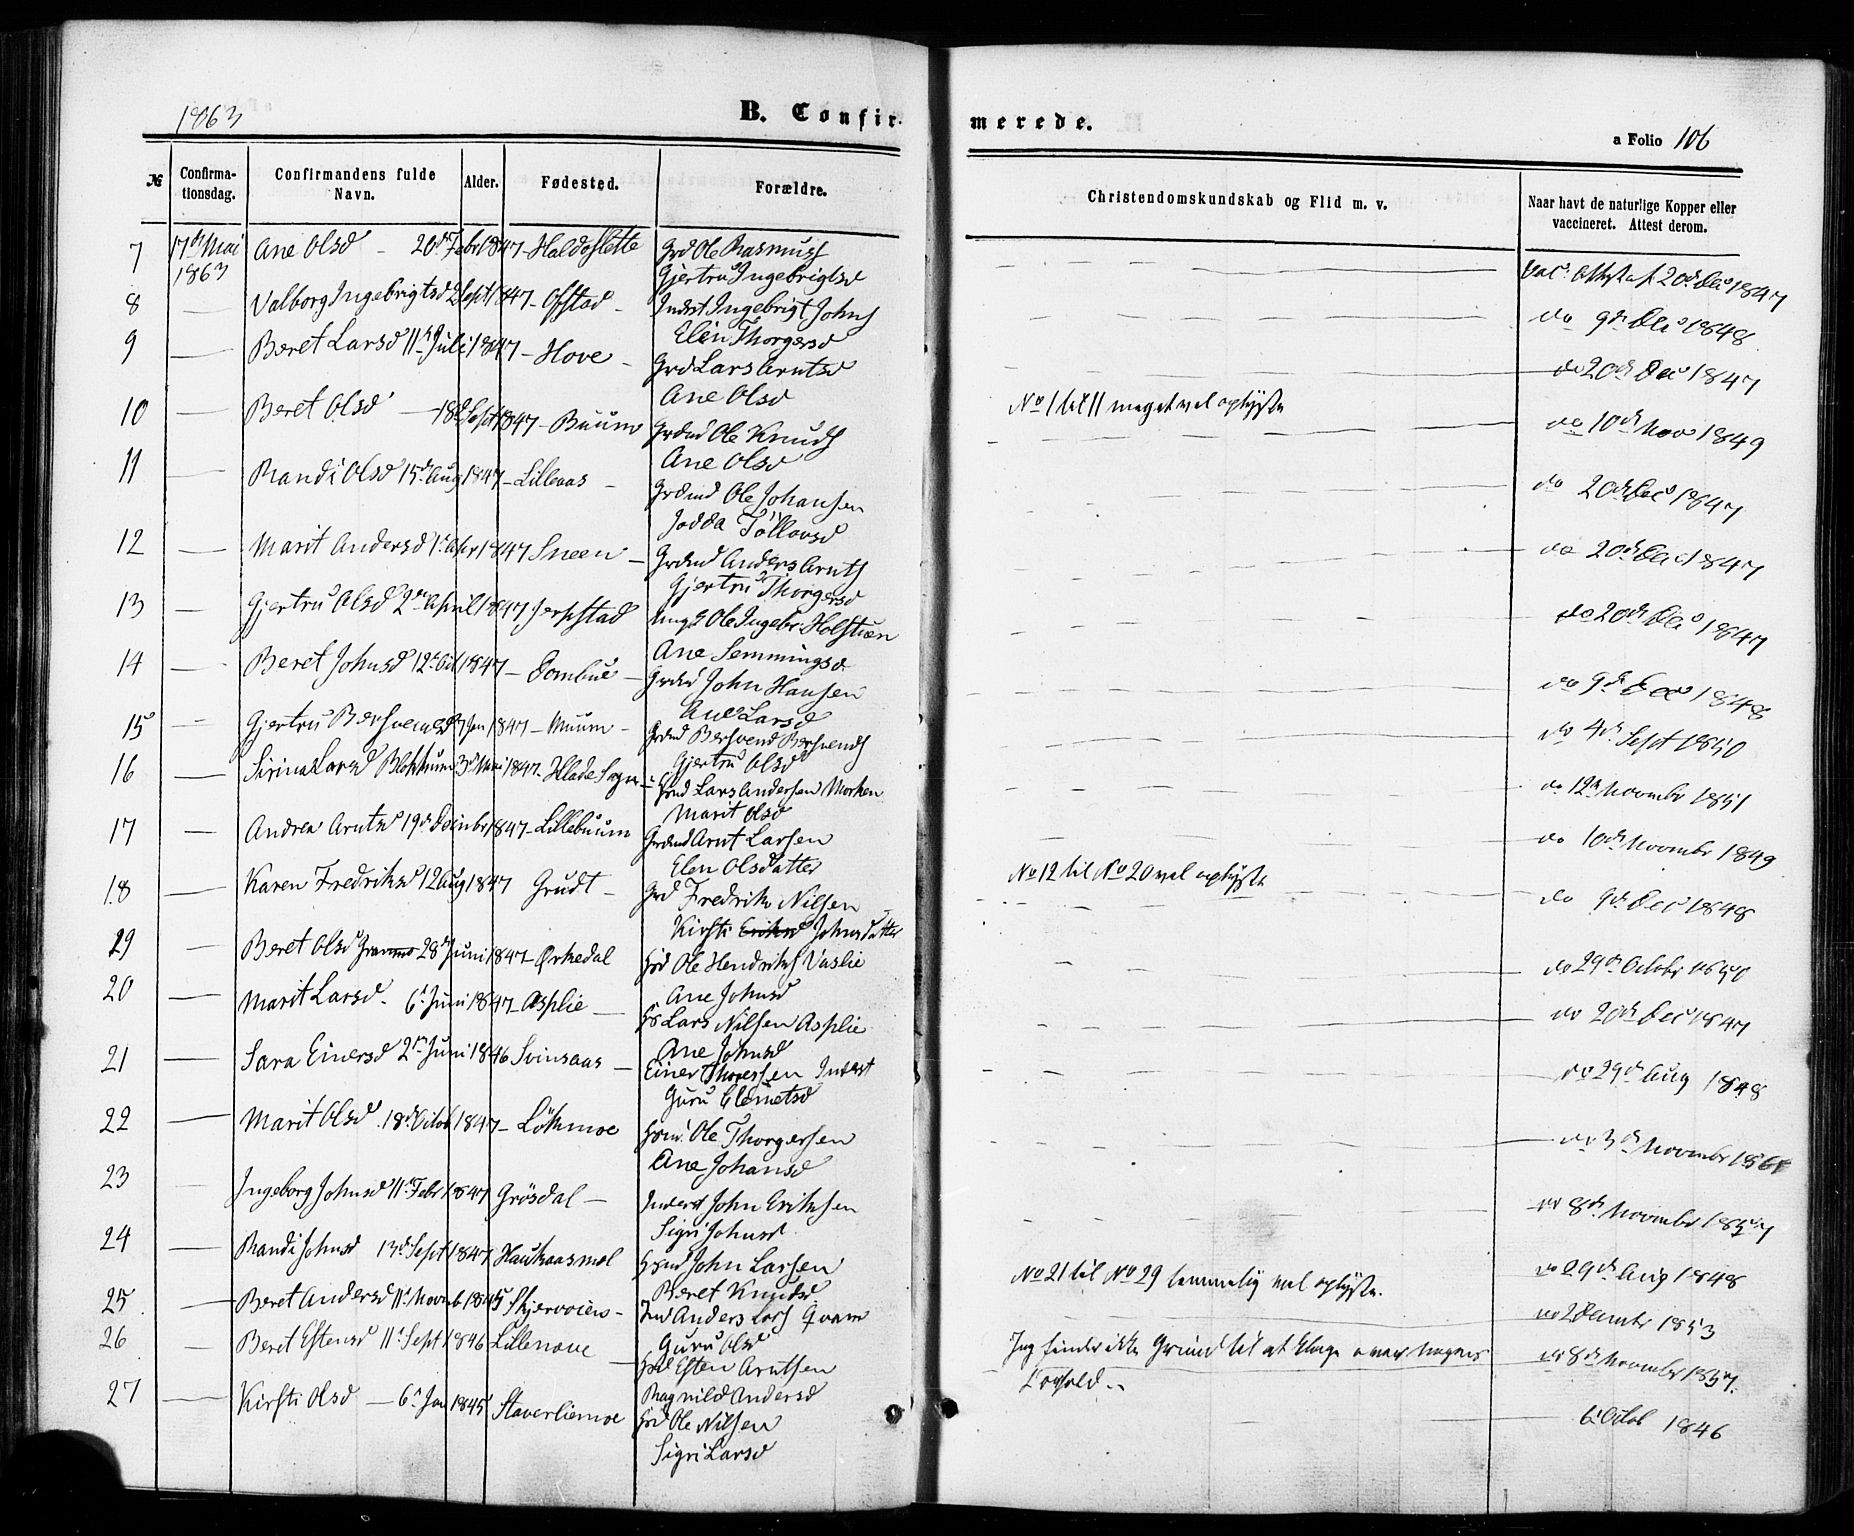 1863
B. Confirmerede.
a Folio 106
№ Confirmationsdag. Confirmandens fulde Navn. Alder. Fødested. Forældre. Christendomskundskab og Flid m. v. Naar havt de naturlige Kopper eller vaccineret. Attest derom.
7 17de Mai 1863 Ane Olsd - 20de Febr 1847 - Haldoslette Grd Ole Rasmuss 20de Dec 1847
Gjertru Ingebrigtsd
8 — Valborg Ingebrigtsd 2 Sept 1847 - Ofstad - Inderst Ingebrigt Johns do 9de Dec 1848
Elen Thorgersd
9 — Beret Larsd 11te Juli 1847 - Hove - Grd Lars Arntsd do 20de Dec 1847
Ane Olsd
10 — Beret Olsd — 18de Sept 1847 - Buum Grdmd Ole Knuds No 1 til 11 meget vel oplyste do 10de Nov 1849
Ane Olsd
11 — Randi Olsd 15de Aug 1847 - Lilleaas - Grdmd Ole Johansen do 20de Dec 1847
Jodda Tollovsd
12 — Marit Andersd 1ste Apr 1847 Sneen - Grdmd Anders Arnts do 20de Dec 1847
Gjertru Thorgersd
13 — Gjertru Olsd 2den April 1847 Jerpstad Ungk Ole Ingebr. Holstuen do 20de Dec 1847
Ane Semmingsd
14 — Beret Johnsd 12te Oct 1847 - Dombue - Grdmd John Hansen do 9de Dec 1848
Ane Larsd
15 — Gjertru Bersvendsd 7 Jan 1847 - Muum - Grdmd Bersvend Bersvends do 4de Sept 1850
Gjertru Olsd
16 — Sirina Larsd Blokkum 3de Mai 1847 - Hlade Sogn - Hsmd Lars Andersen Morken do 12te Novembr 1851
Marit Olsd
17 — Andrea Arntsd 19de Decinbr 1847 - Lillebuum Grdmd Arnt Larsen do 10de Novembr 1849
Elen Olsdatter
18 — Karen Fredriksd 12 Aug 1847 Grudt - Grd Fredrik Nilsen No 12 til No 20 vel oplyste do 9de Dec 1848
Kirsti Eriksd Johnsdatter
29 — Beret Olsd 28de Juni 1847 - Ørkedal Hsd Ole Hendriks Vaslie do 29de Octobr 1850
Ane Johnsd
20 — Marit Larsd. 6te Juni 1847 - Asplie — Hs Lars Nilsen Asplie do 20de Dec 1847
Ane Johnsd
21 — Sara Einersd 2den Juni 1846 Svinsaas — Einer Thoresen Inderst do 29de Aug 1848
Guru Clemetsd
22 — Marit Olsd. 18de Octob 1847 - Lökmoe Hsmd. Ole Thorgersen do 3de Novembr
Ane Johansd
23 — Ingeborg Johnsd 11te Febr 1847 Grösdal — Inderst John Eriksen do 8de Novembr 1857
Sigri Johnsd.
24 — Randi Johnsd 13de Sept 1847 Haukaasmel Hsmd John Larsen No 21 til No 29 temmelig vel oplyste. do 29de Aug 1848
Beret Knudsd
25 — Beret Andersd 11te Novemb 1845 Skjervoiens - Ind Anders Lars Qvam do 2 Decembr 1853
Guru Olsd
26 — Beret Estensd 11te Sept 1846 Lillenove — Hsd Esten Arntsen Jeg finder ikke Grund til at klage over nogens Forhold. — do 8de Novembr 1857.
Ragnild Andersd
27 — Kirsti Olsd — 6te Jan 1845 Staverliemoe Hsd Ole Nilsen 6te Octob 1846
Sigri Larsd